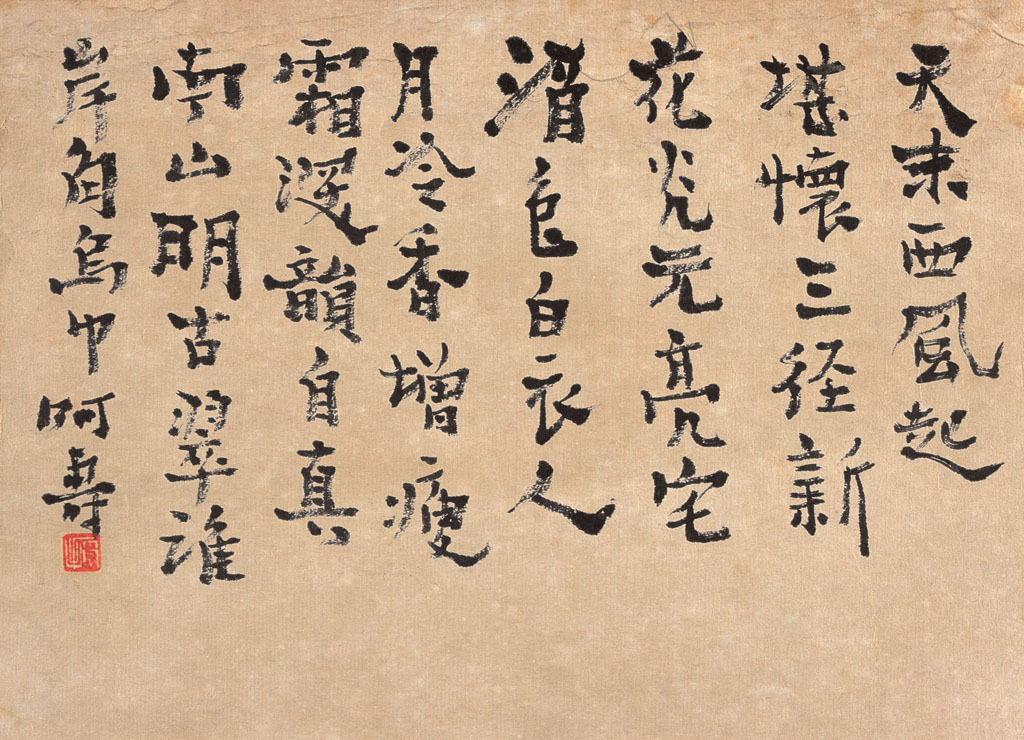 天末西風起
堪懷三径新
花光元亮宅
酒色白衣人
月冷香增瘦
霜深韻自真
南山明古翠誰
岸角烏巾呵壽